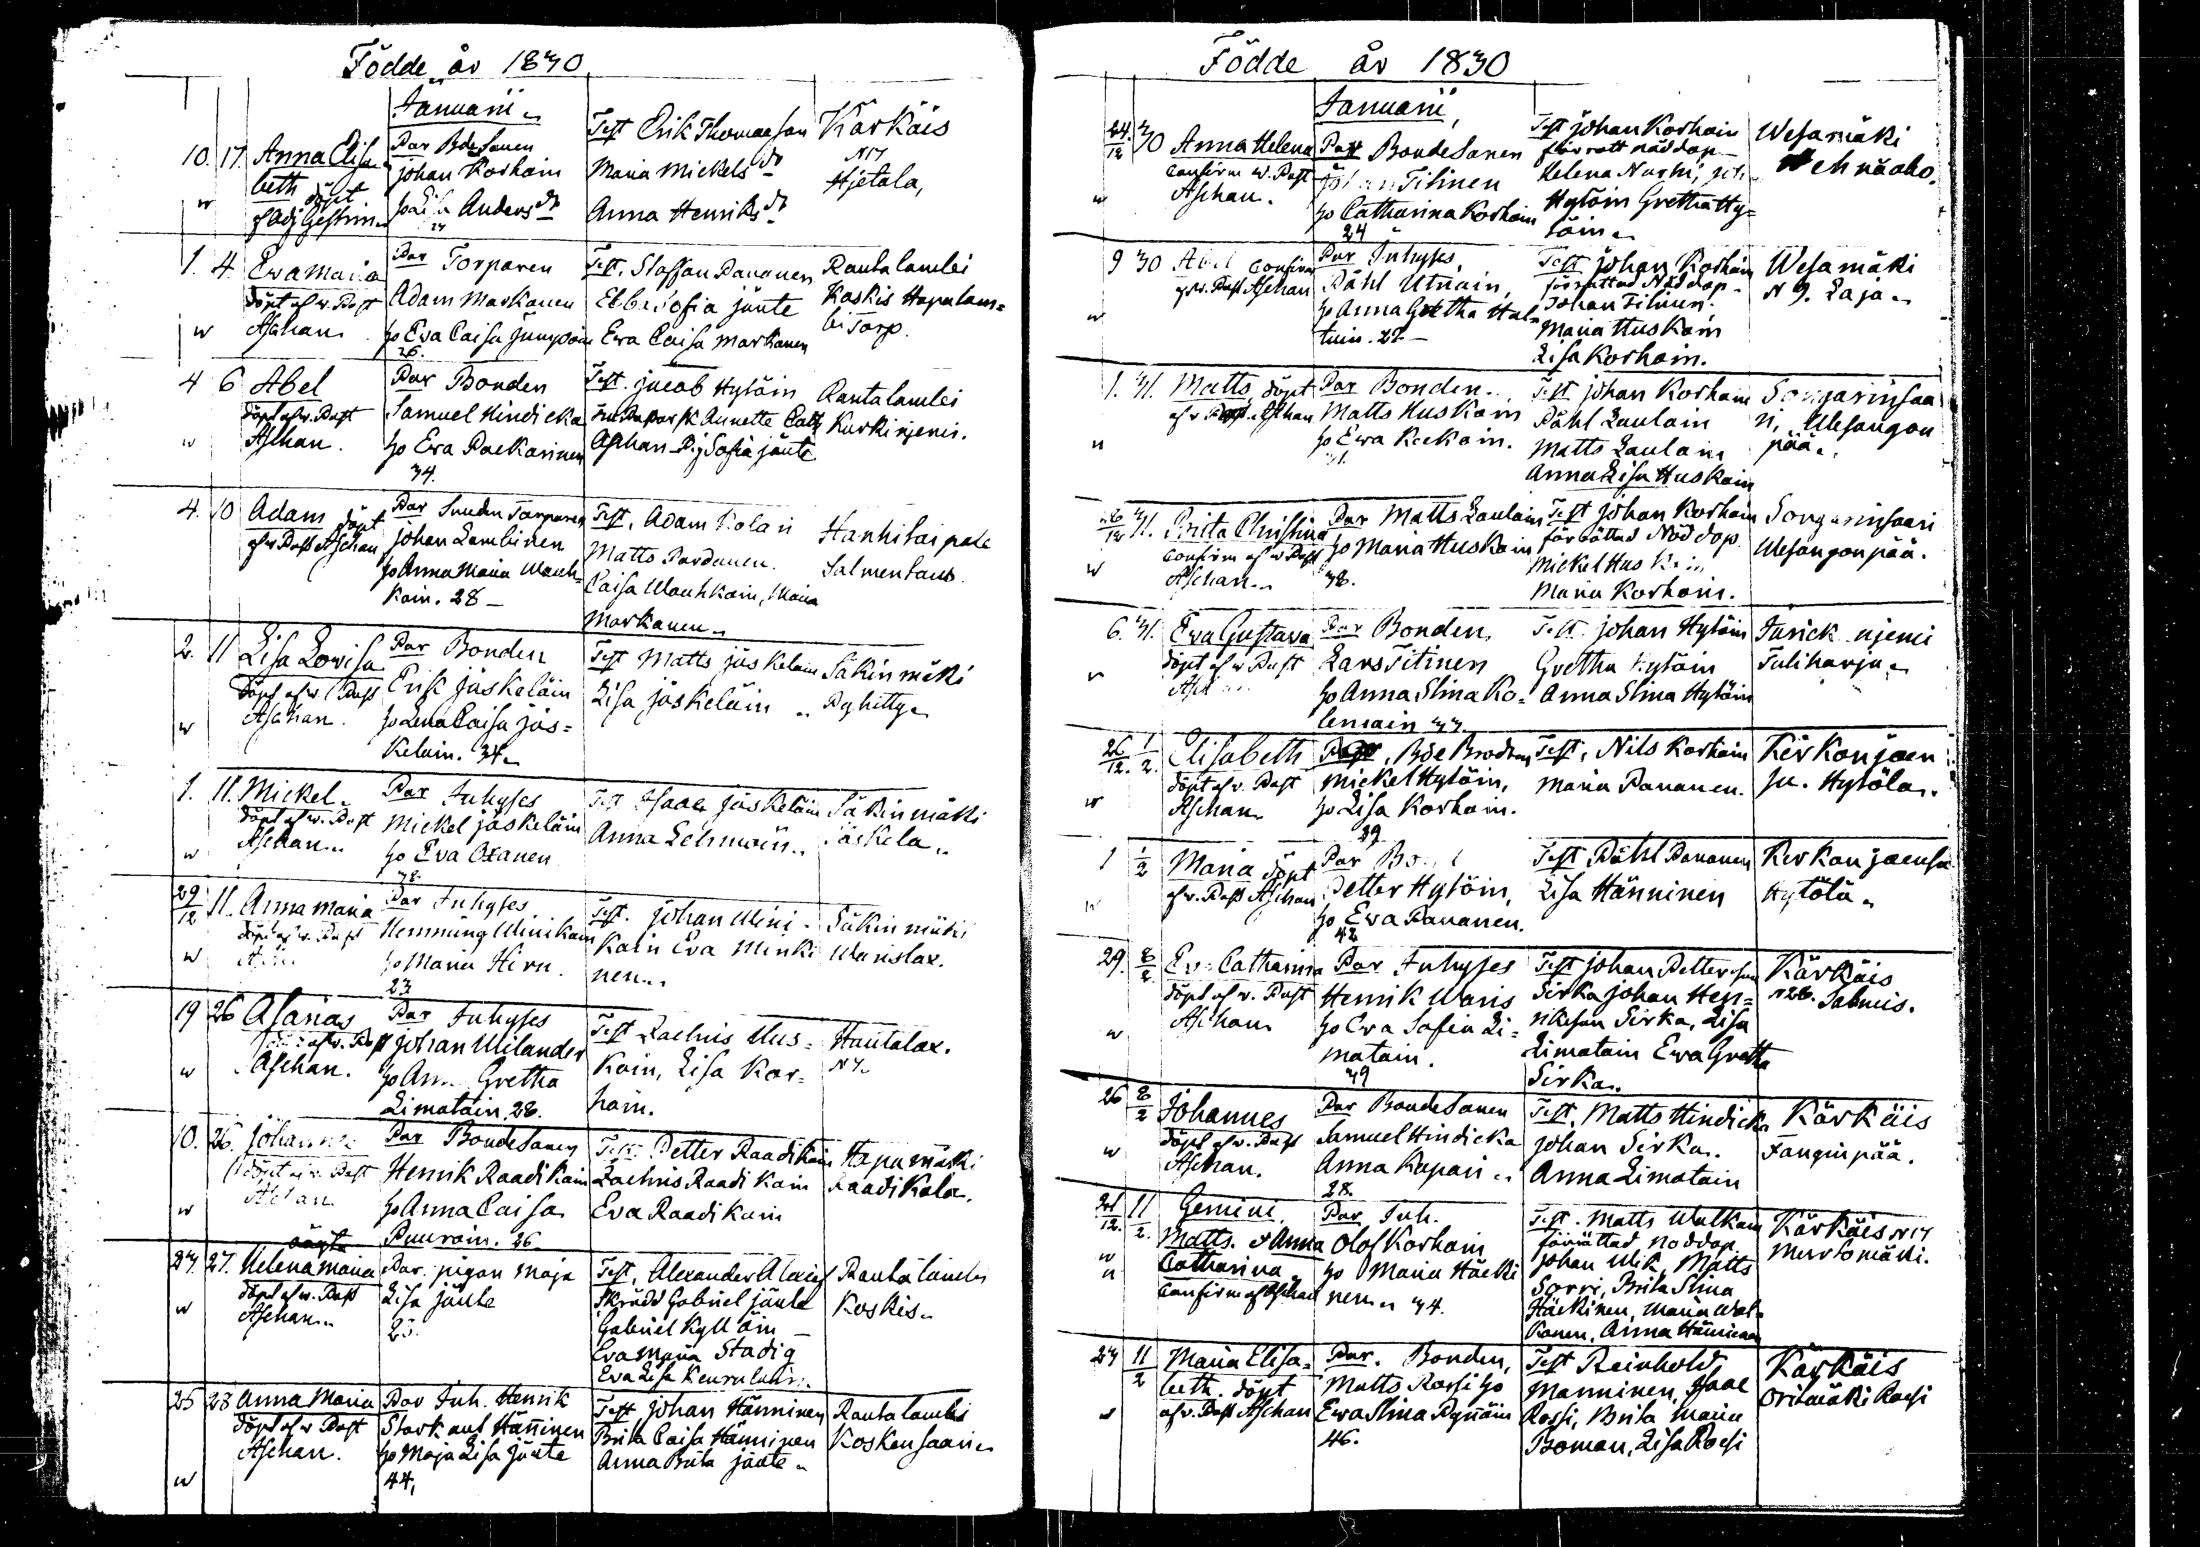 Födde år 1830
Januarii
10. 17. Anna Elisa
beth döpt
af Adj Gestrin
Par BdeSonen
johan Korhain
ho Lisa Anders dr
Test Erik Thomasson
Maria Mickels dr
Anna Henriks dr
Karkäis
N 17
Hjetala,
1. 4. Eva Maria
döpt af w. Past
Aschan
Par Torparen
Adam Markanen
ho Eva Caisa Jumpain
26.
Test. Staffan Pananen
Ebba Sofia jänte
Eva Caisa Markanen
Rautalambi
Koskis Hapalam=
bi Torp.
4 6 Abel
döpt af w. Past
Aschan.
Par Bonden
Samuel Hindicka
ho Eva Paekarinen
34.
Test. jacob Hytöin
Aschan Pig Sofia jänte
Rautalambi
Kurkinjemi.
4. 10 Adam döpt
af w Past Aschan
johan Lambinen
ho Anna Maria Wauh=
kain. 28
Test, Adam Kolari
Matts Pardanen.
Caisa Wauhkain, Maria
Markanen
Hankitaipale
Salmentaus.
2. 11 Lisa Lovisa
döpt af w Past
Aschan.
Par Bonden
Erik jäskeläin
ho Lena Caisa jäs=
kelain. 34.
Test Matts jäskelain
Lisa jäskeläin
Säkinmäki
Pyhitty
1. 11. Mickel
döpt af w. Past
Aschan
Par Inhyses
Mickel jäskeläin
ho Eva Oxanen
38.
Test Isaac jäskeläin
Anna Lehmoin
Säkinmäki
jäskela
29/12 11. Anna Maria
döpt af w. Past
Par Inhyses
Hemming Minikain
ho Maria Hirn.
23
Test. johan Mini-
kain Eva Minki
nen
Säkinmäki
19 26 Asarias
döpt af w. Past
Aschan.
Par Inhyses
johan Wilander
ho Anna Gretha
Limatain. 28.
Test Zachris Hus=
kain, Lisa Kor=
hain.
Hautalax.
N 7
10. 26. johannes
döpt af w. Past
Aschan
Par BondeSonen
Henrik Raadikain
ho Anna Caisa
Puurain. 26
Test. Petter Raadikain
Zachris Raadikain
Eva Raadikain
Hapamäki
Raadikala
27. 27. oägta
Helena Maria
döpt af w. Past
Aschan
Par. pigan Maja
Lisa jänte
23.
Test, Alexander Alexief
Skrädd Gabriel jänte
Gabriel Kyllöin
Eva Maria Stadig
Eva Lisa Keurulain
Rautalambi
Koskis
25 28 Anna Maria
döpt af w Past
Aschan.
Par Inh. Henrik
Stark aut Hänninen
ho Maja Lisa jänte
44,
Test johan Hänninen
Brita Caisa Hänninen
Anna Brita jänte
Rautalambi
Koskensaari
Födde år 1830
Januarii,
24/12 30 Anna Helena
Confirm w. Past
Aschan.
Par BondeSonen
Johan Titinen
ho Catharina Korhain
24
Test johan Korhain
förrätt nöddop
Hytöin Gretha Hy=
töin
Wesamäki
9 30 Abel Confirm
af w. Past Aschan
Par Inhyses,
Påhl Utriain,
ho Anna Gretha Hal=
tuin. 22
Test johan Korhain
förrättad Nöddop
Johan Titinen.
Maria Huskain
Lisa Korhain.
Wesamäki
N 9. Laja
1. 31. Matts, döpt
af w Past Aschan
Par Bonden
Matts Huskain
ho Ewa Keckain.
31.
Test johan Korhain
Påhl Laulain
Matts Laulain
Anna Lisa Huskain
Songarinsaa
ri, Wesangon
pää
26/12 31. Britta Christina
Confirm af w Past
Aschan
Par Matts Laulain
ho Maria Huskain
38.
Test johan Korhain
förrättad Nöd dop.
Mickel Huskain
Maria Korhain.
Songarinsaari
Wesangonpää.
6. 31. Eva Gustava
döpt af w Past
Par Bonden,
Lars Titinen
ho Anna Stina Ko=
lemain 33
Test. johan Hytöin
Gretha Hytöin
Anna Stina Hytöin
Tuliharju
26/12. 1/2. Elisabeth
döpt af w. Past
Aschan
Par, Bde Brodren
Mickel Hytöin,
ho Lisa Korhain.
29
Test, Nils Korhain
Maria Pananen.
Kerkonjoen
su. Hytöla
1 1/2 Maria döpt
af w. Past Aschan
Par
Petter Hytöin,
ho Eva Pananen.
42
Test Påhl Pananen
Lisa Hänninen
Kerkonjoensu
Hytölä
29. 8/2. Eva Catharina
döpt af w. Past
Aschan
Par Inhyses
Henrik Waris
ho Eva Sofia Li=
matain.
39
Test johan Petterson
Sirka johan Hen=
riksson Sirka, Lisa
Limatain Ewa Gretha
Sirka
Kärkäis
N 26. Salmis.
26 8/2 Johannes
döpt af w. Past
Aschan.
Par BondeSonen
Samuel Hindicka
Anna Kapain
28.
Test, Matts Hindicka
johan Sirka
Anna Limatain
Kärkäis
Tanginpää.
21/12. 11/2. Gemini
Matts. & Anna
Catharina
Confirm af Aschan
Par Inh.
Olof Korhain
ho Maria Häcki
nen 34.
Test. Matts Walkain
förrättad nöddop
johan Wik, Matts
Sorri, Brita Stina
Häckinen, Maria Wal=
kanen, Anna Hänninen
Kärkäis N 17
Murtomäki.
27 11/2 Maria Elisa=
beth. döpt
af w. Past Aschan
Par. Bonden,
Matts Rossi ho
Ewa Stina Pynnäin
46.
Test Reinhold
Manninen, Isaac
Rossi, Brita Maria
Boman, Lisa Rossi
Kärkäis
Oritmäki Rossi